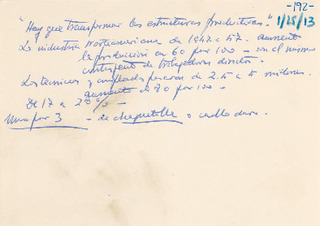 -192-
1/25/13
"Hay que transformar las estructuras productivas."
La industria norteamericana de 1947 a 57. aumento
la producción en 60 por 100 - con el mismo
de trabajadores directos.
Los técnicos y empleados pasaron de 2.5 a 5 millones.
aumento de 70 por 100 -
de 17 a 28 % -
uno por 3 - de chaquetilla o